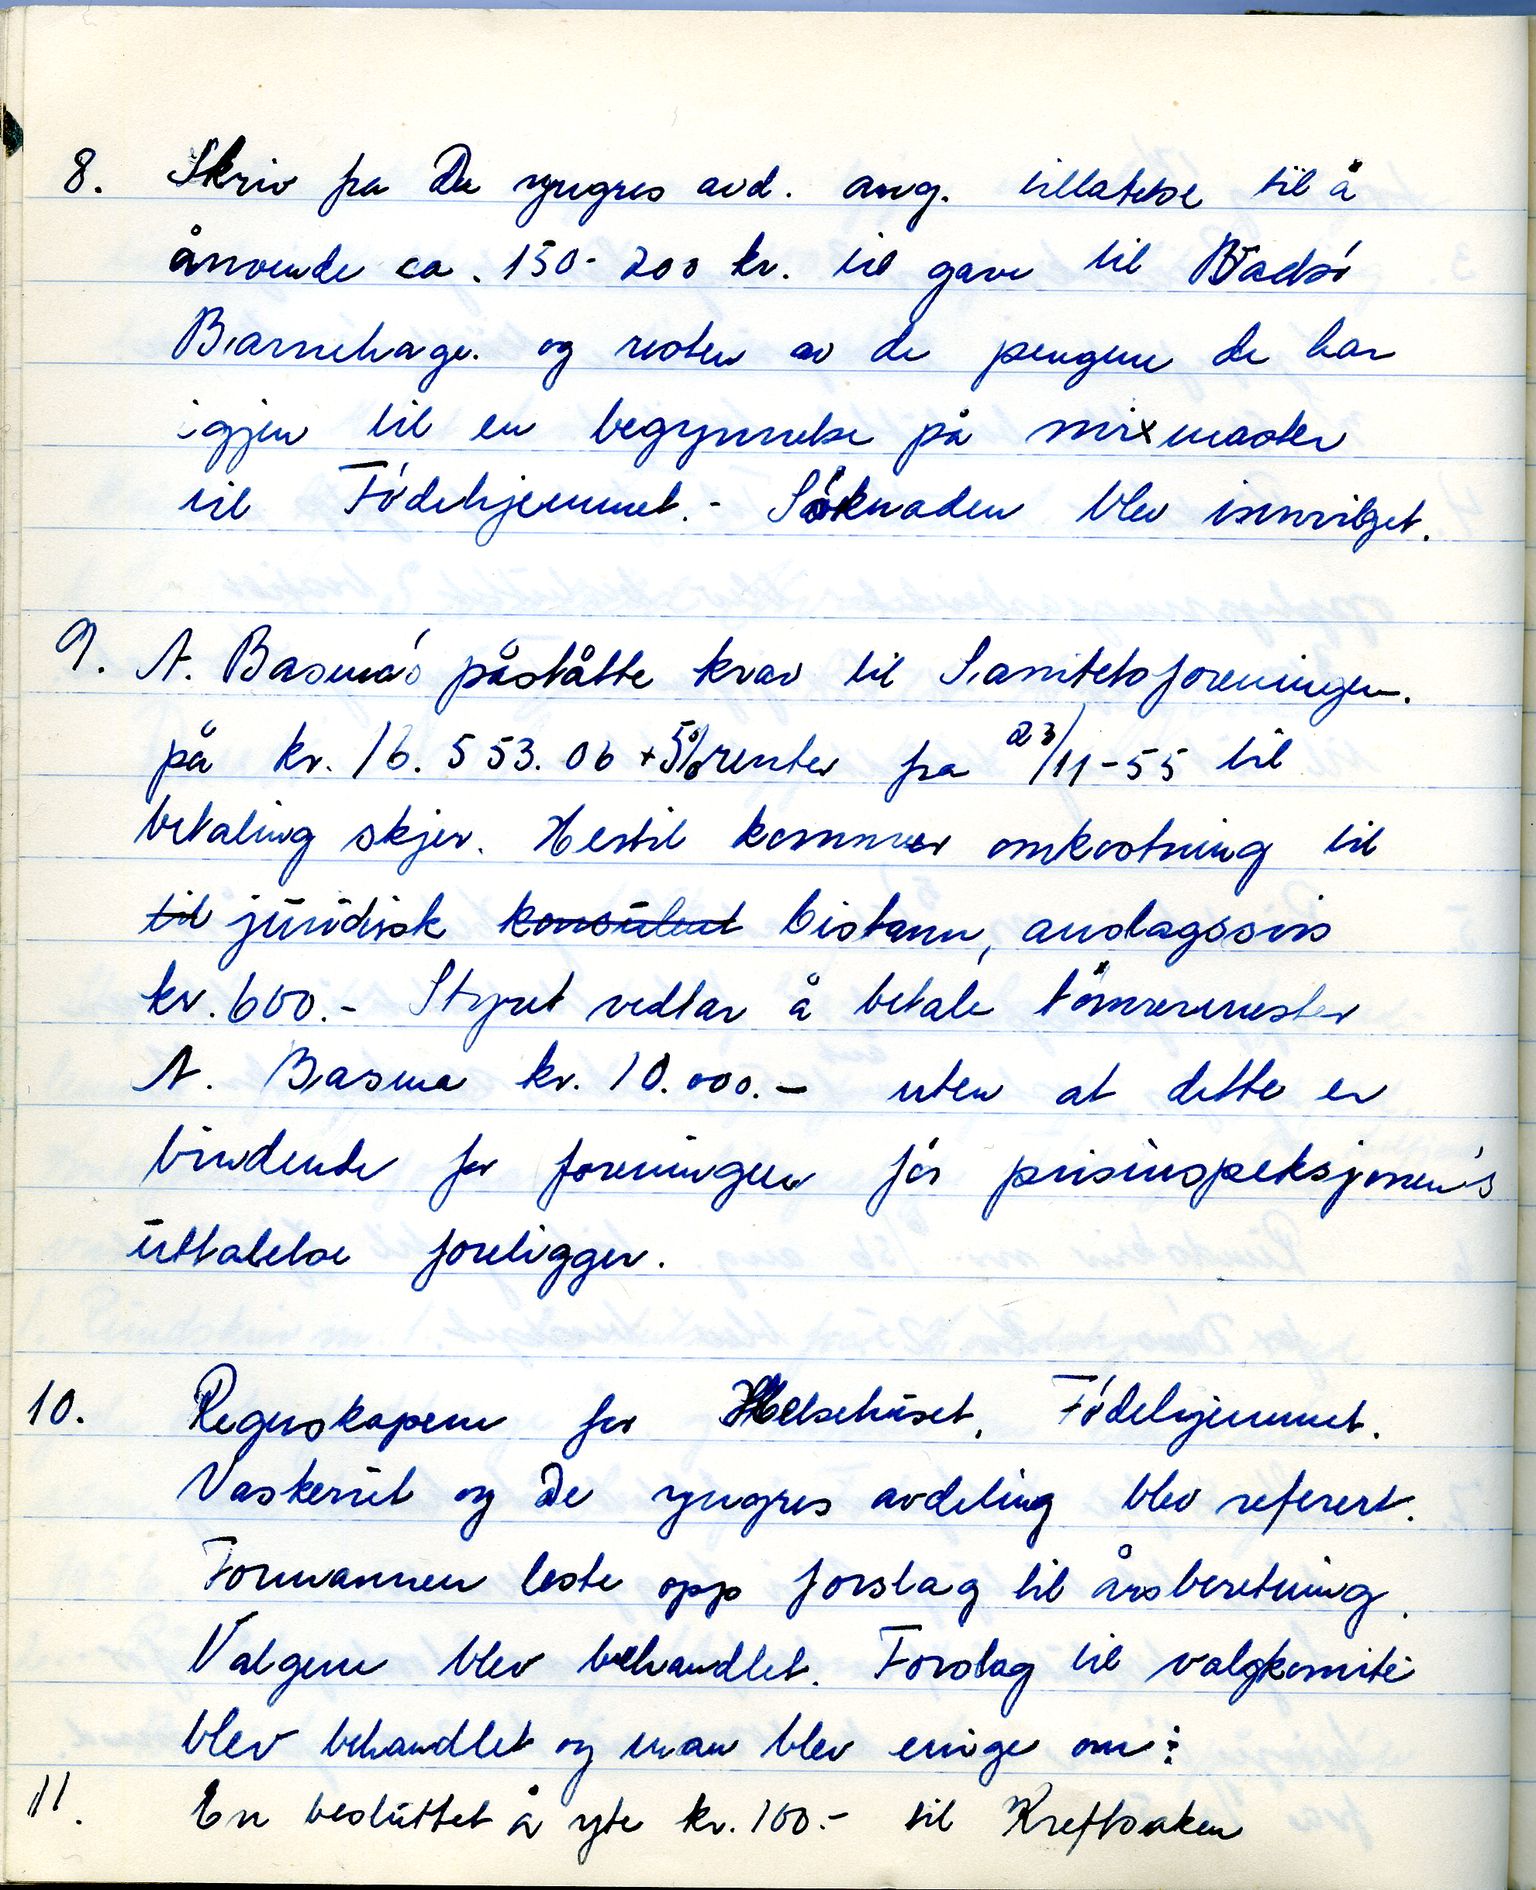 8. Skriv fra De yngres avd. ang. tillatelse til å
anvende ca. 150-200 kr. til gave til Vadsö
Barnehage. og resten av de pengene de har
igjen til en begynnelse på mixmaster
til Födehjemmet.- Söknaden blev innvilget.
9. N. Basma's påståtte krav til Sanitetsforeningen.
på kr. 16.553.06 + 5% renter fra 23/11-55 til
betaling skjer. Hertil kommer omkostning til
til juridisk konsulent bistann, anslagsvis
kr. 600.- Styret vedtar å betale tömrermester
N. Basma kr. 10.000.- uten at dette er
bindende for foreningen för prisinspeksjonen's
uttalelse foreligger.
10. Regnskapene for Helsehuset, Födehjemmet.
Vaskeriet og De yngres avdeling blev referert.
Formannen leste opp forslag til årsberetning.
Valgene blev behandlet. Forslag til valgkomité
blev behandlet og man blev enige om:
11. En besluttet å yte kr. 100.- til Kreftsaken